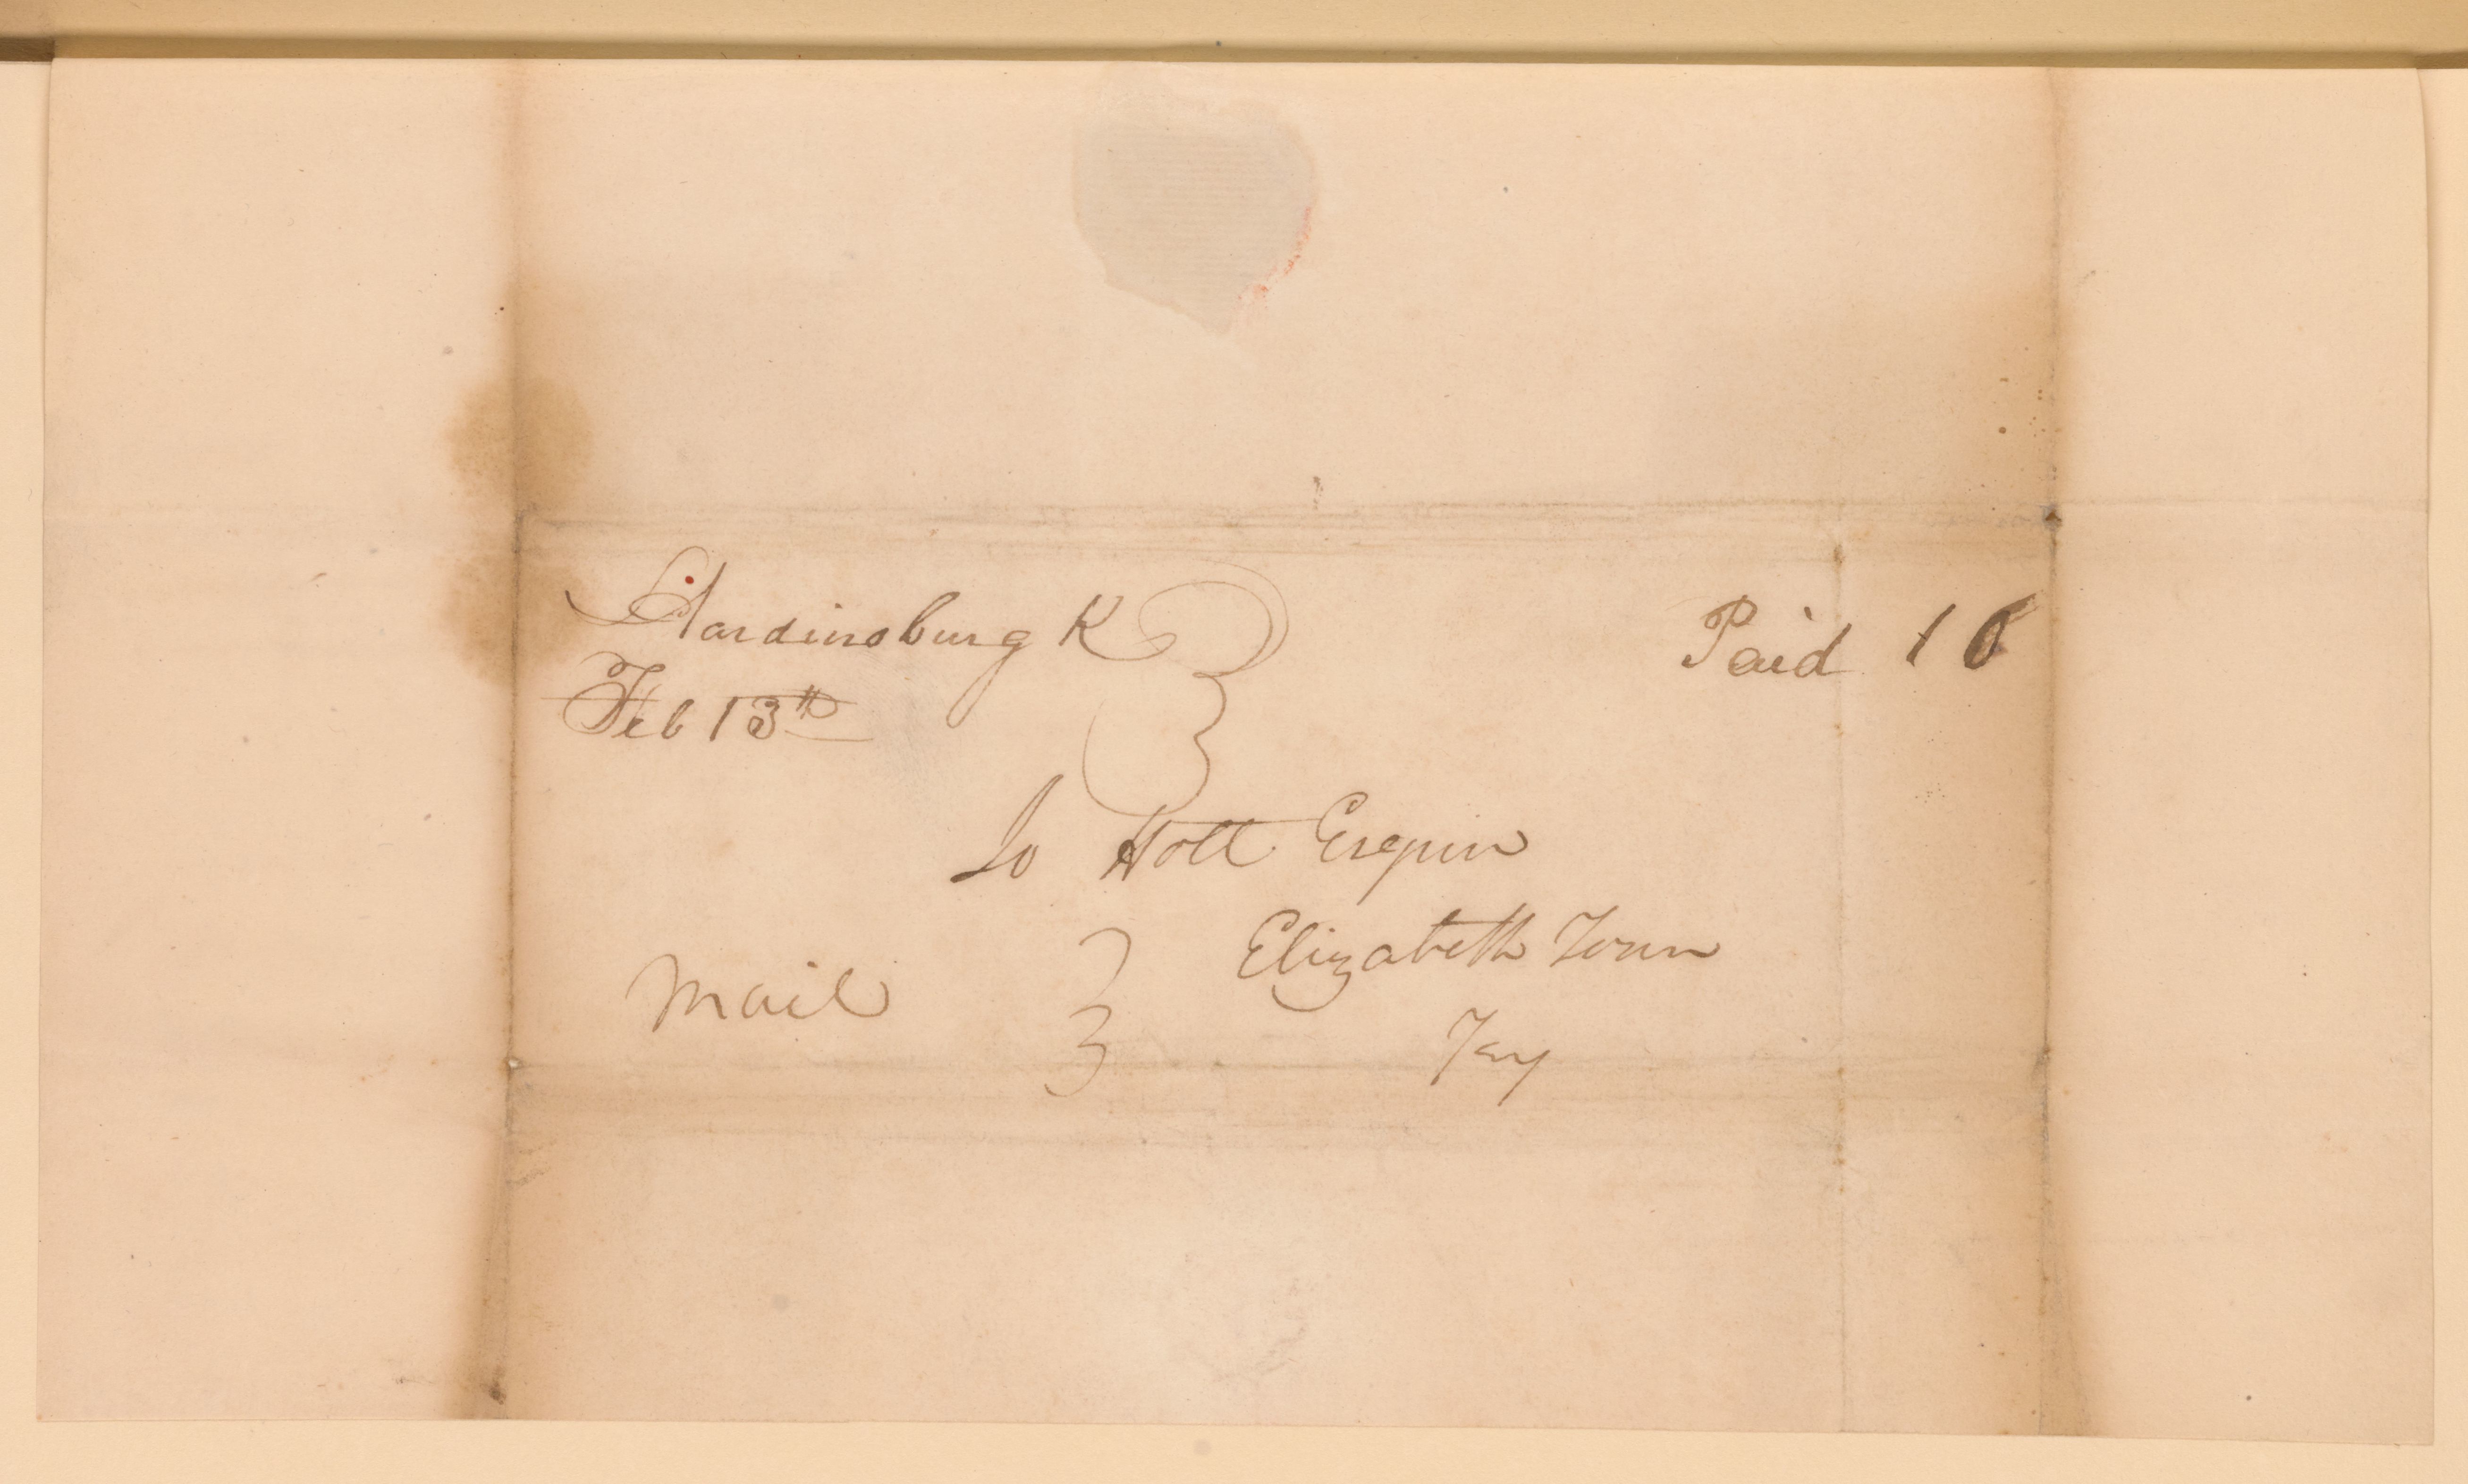 Hardinsburg K
Feb 13th
Paid 10
Jo Holt Esquire
Elizabeth Town
Mail
Ky